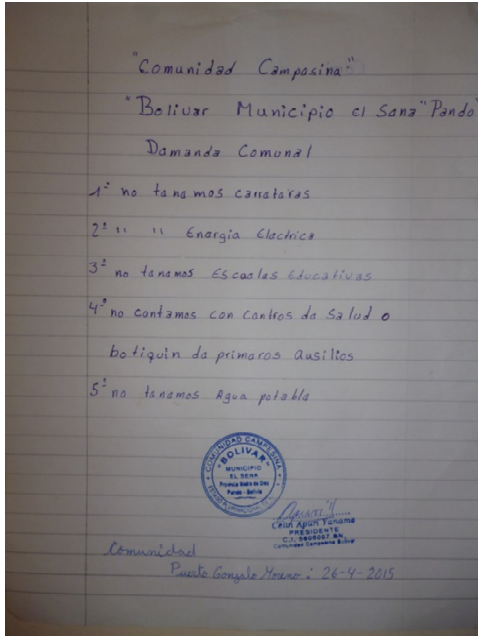 "Comunidad Campesina"
"Bolivar Municipio el Sena "Pando"
Demanda Comunal
1º no tenemos carreteras
2º " " Energia Electrica
3º no tenemos Escuelas Educativas
4º no contamos con centros de Salud o
botiquin de primeros ausilios
5º no tenemos Agua potable
COMUNIDAD CAMPESINA
"BOLIVAR"
MUNICIPIO
EL SENA
Provincia Madre de Dios
Pando - Bolivia
Celin Apuri Yaname
PRESIDENTE
Comunidad Campesina Bolivar
Comunidad
Puerto Gonzalo Moreno: 26-4-2015